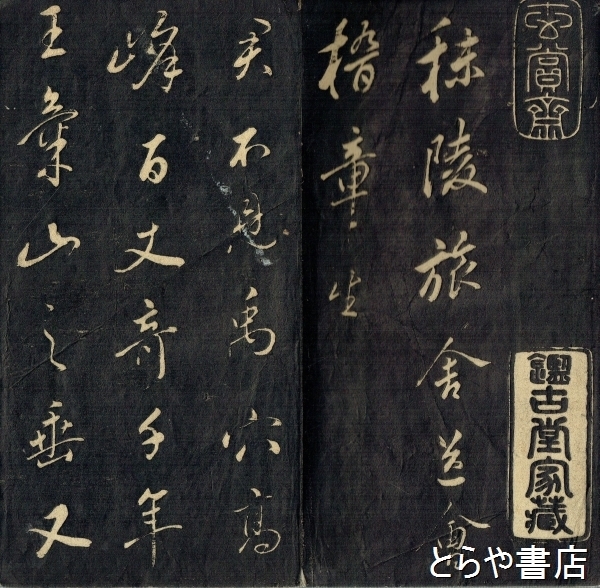 玄賞齋
古堂家藏
秣陵旅舍送會
稽章生
君不見禹穴高
峰百丈奇千年
王氣山之垂又
とらや書店